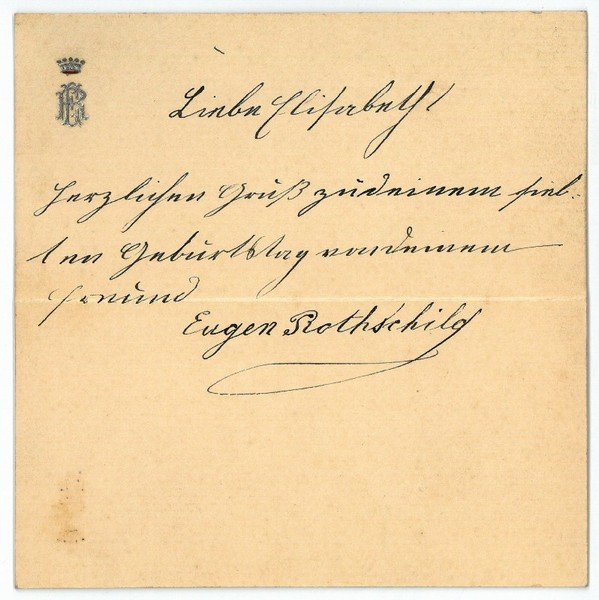 ER
Liebe Elisabeth!
Herzlichen Gruß zu deinem sieb-
ten Geburtstag von deinem
Freund
Eugen Rothschild